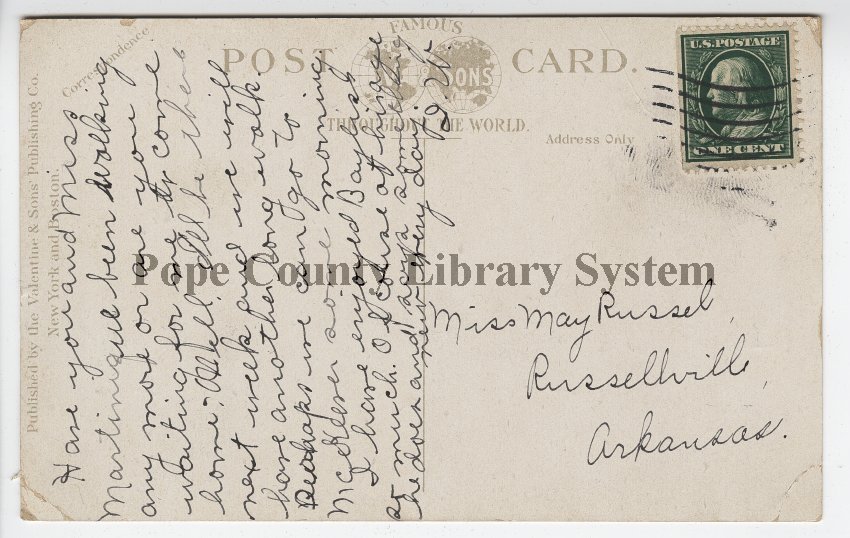 Published by the Valentine & Sons' Publishing Co.
New York and Boston.
Correspondence
FAMOUS
POST CARD.
SONS
THROUGHOUT THE WORLD.
Address Only
U.S. POSTAGE
ONE CENT
Have you and Miss
Martinique been walking
any more or are you
waiting for me to come
home. Well I'll be there
next week and we will
have another long walk.
Perhaps we can go to
some morning
I have enjoyed Baylish
so much. Of course at
he does and says
new every day.
Miss May Russel,
Russellville,
Arkansas.
Pope County Library System